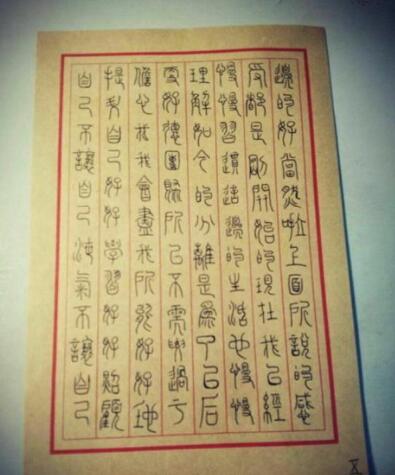 邊的好當然啦上面所說的感
受都是剛開始的現在我已經
慢慢習慣這邊的生活也慢慢
理解如今的分離是爲了以后
更好德團聚所以不需要過于
擔心我我會盡我所能好好地
自己好好學習好好照顧
自己不讓自己氣不讓自己